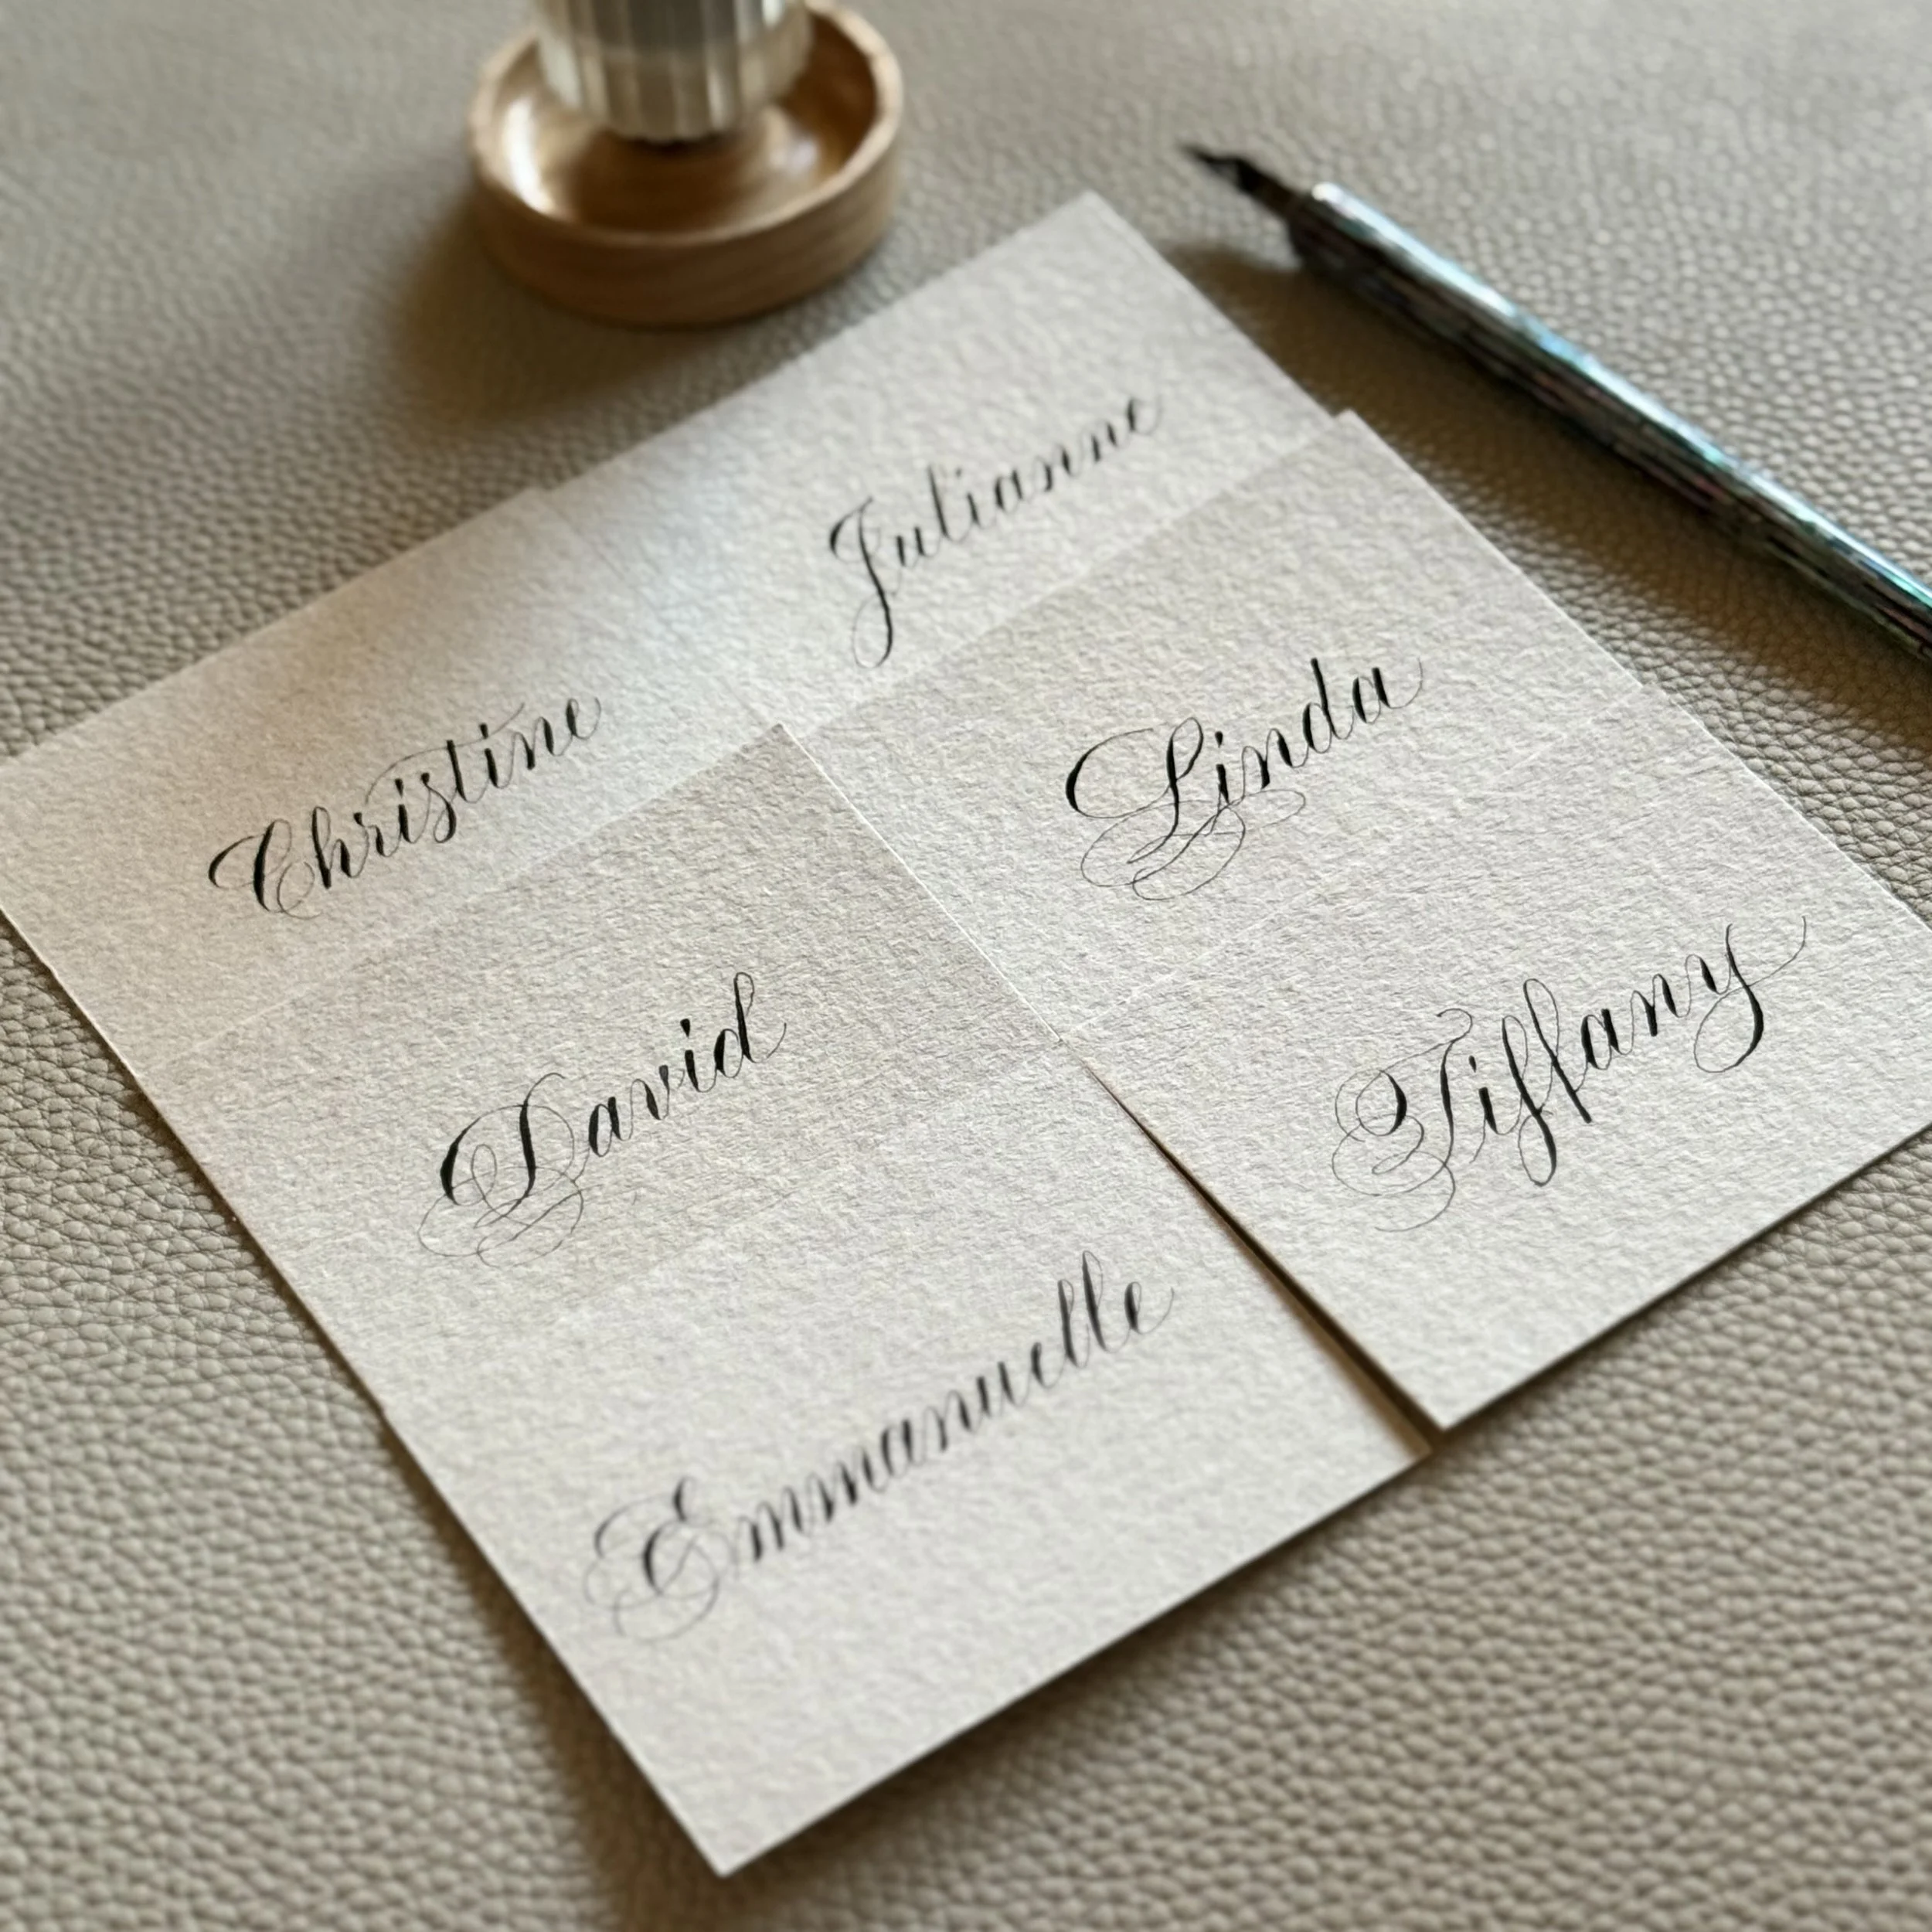 Christine
Julianne
David
Linda
Emmanuelle
Tiffany